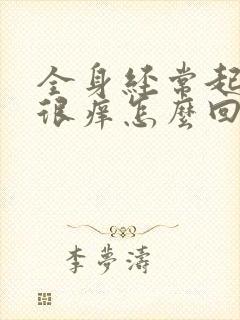 全身經常起
很癢怎麼回
李夢濤